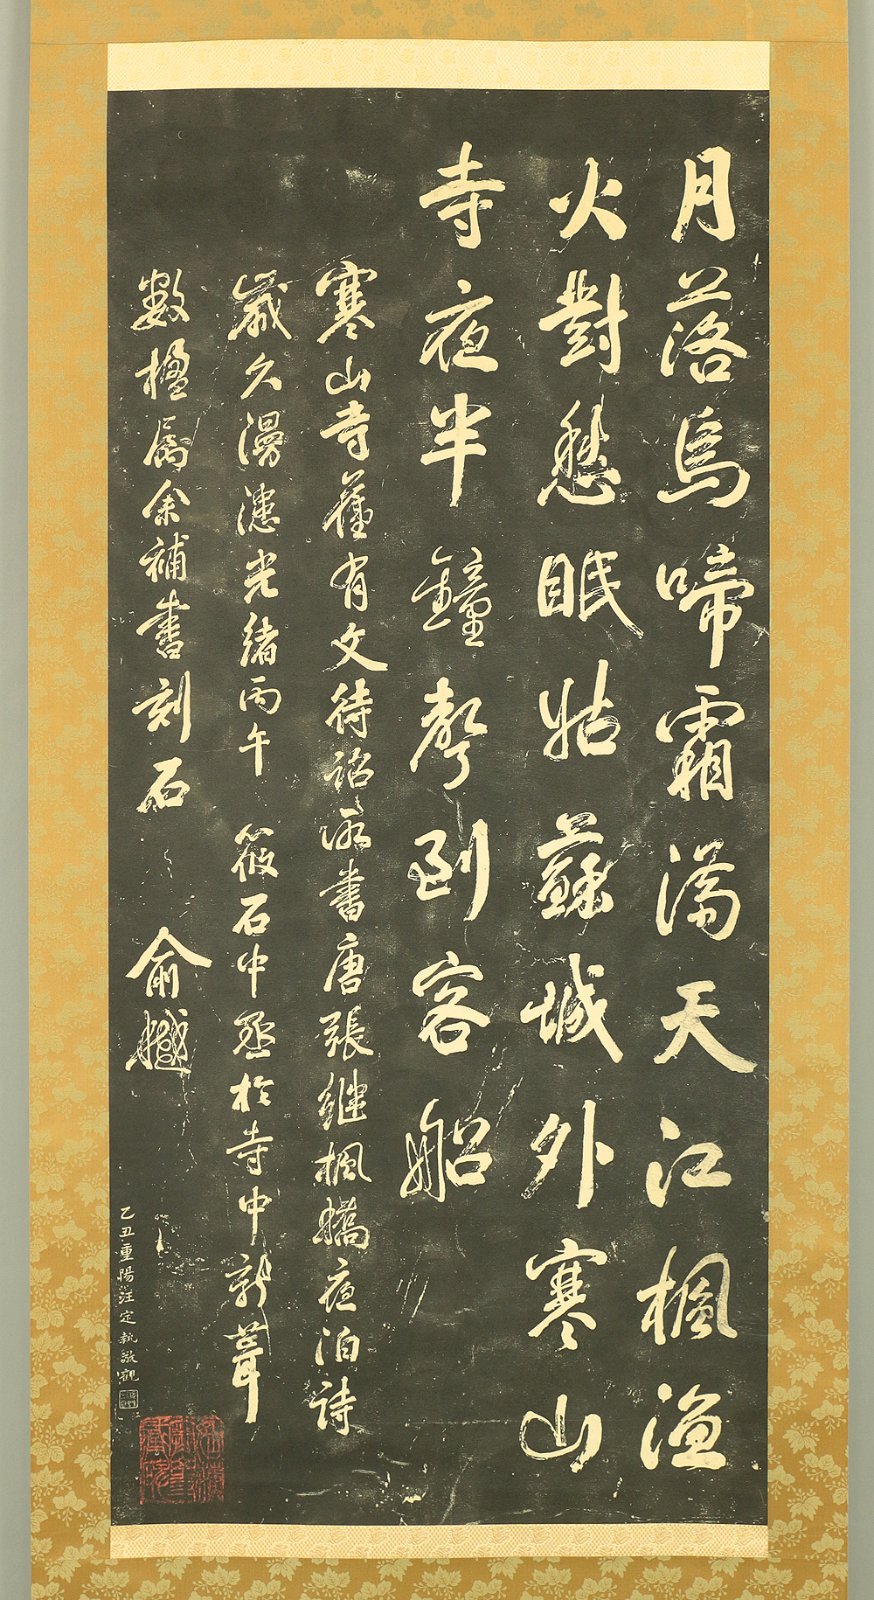 月落烏啼霜滿天江楓漁
火對愁眠姑蘇城外寒山
寺夜半鐘聲到客船
寒山寺舊有文待詔所書唐張繼楓橋夜泊詩
歲久漫漶光緒丙午 筱石中丞於寺中新葺
數楹屬余補書刻石
俞樾
乙丑重陽汪定執敬觀